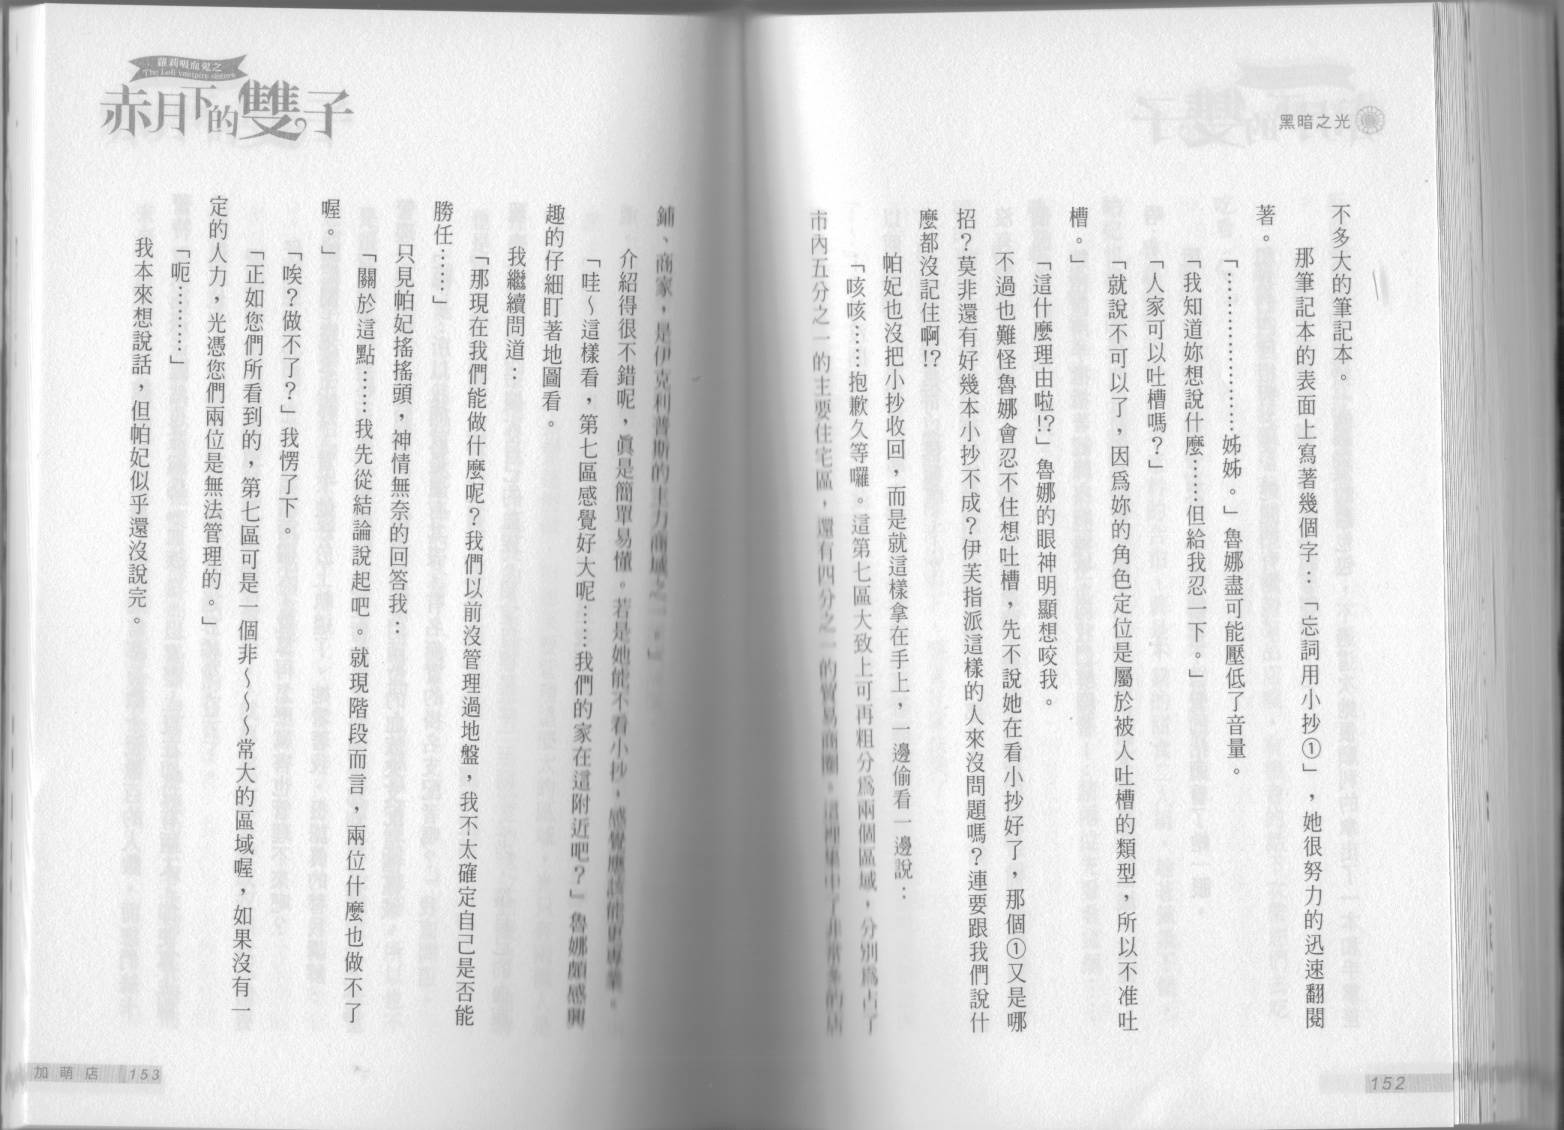 黑暗之光
不多大的筆記本。
那筆記本的表面上寫著幾個字：「忘詞用小抄①」，她很努力的迅速翻閱
著。
「………………………姊姊。」魯娜盡可能壓低了音量。
「我知道妳想說什麼……但給我忍一下。」
「人家可以吐槽嗎？」
「就說不可以了，因為妳的角色定位是屬於被人吐槽的類型，所以不准吐
槽。」
「這什麼理由啦!?」魯娜的眼神明顯想咬我。
不過也難怪魯娜會忍不住想吐槽，先不說她在看小抄好了，那個①又是哪
招？莫非還有好幾本小抄不成？伊芙指派這樣的人來沒問題嗎？連要跟我們說什
麼都沒記住啊!?
帕妃也沒把小抄收回，而是就這樣拿在手上，一邊偷看一邊說：
「咳咳……抱歉久等囉。這第七區大致上可再粗分為兩個區域，分別為占了
市內五分之一的主要住宅區，還有四分之一的貿易商圈。這裡集中了非常多的店
152
蘿莉吸血鬼之
The Loli vampire sisters
赤月下的雙子
鋪、商家，是伊克利普斯的主力商城之一。」
介紹得很不錯呢，真是簡單易懂。若是她能不看小抄，感覺應該能更專業。
「哇～這樣看，第七區感覺好大呢……我們的家在這附近吧？」魯娜頗感興
趣的仔細盯著地圖看。
我繼續問道：
「那現在我們能做什麼呢？我們以前沒管理過地盤，我不太確定自己是否能
勝任……」
只見帕妃搖搖頭，神情無奈的回答我：
「關於這點……我先從結論說起吧。就現階段而言，兩位什麼也做不了
喔。」
「唉？做不了？」我愣了下。
「正如您們所看到的，第七區可是一個非～～～常大的區域喔，如果沒有一
定的人力，光憑您們兩位是無法管理的。」
「呃………」
我本來想說話，但帕妃似乎還沒說完。
加萌店 153